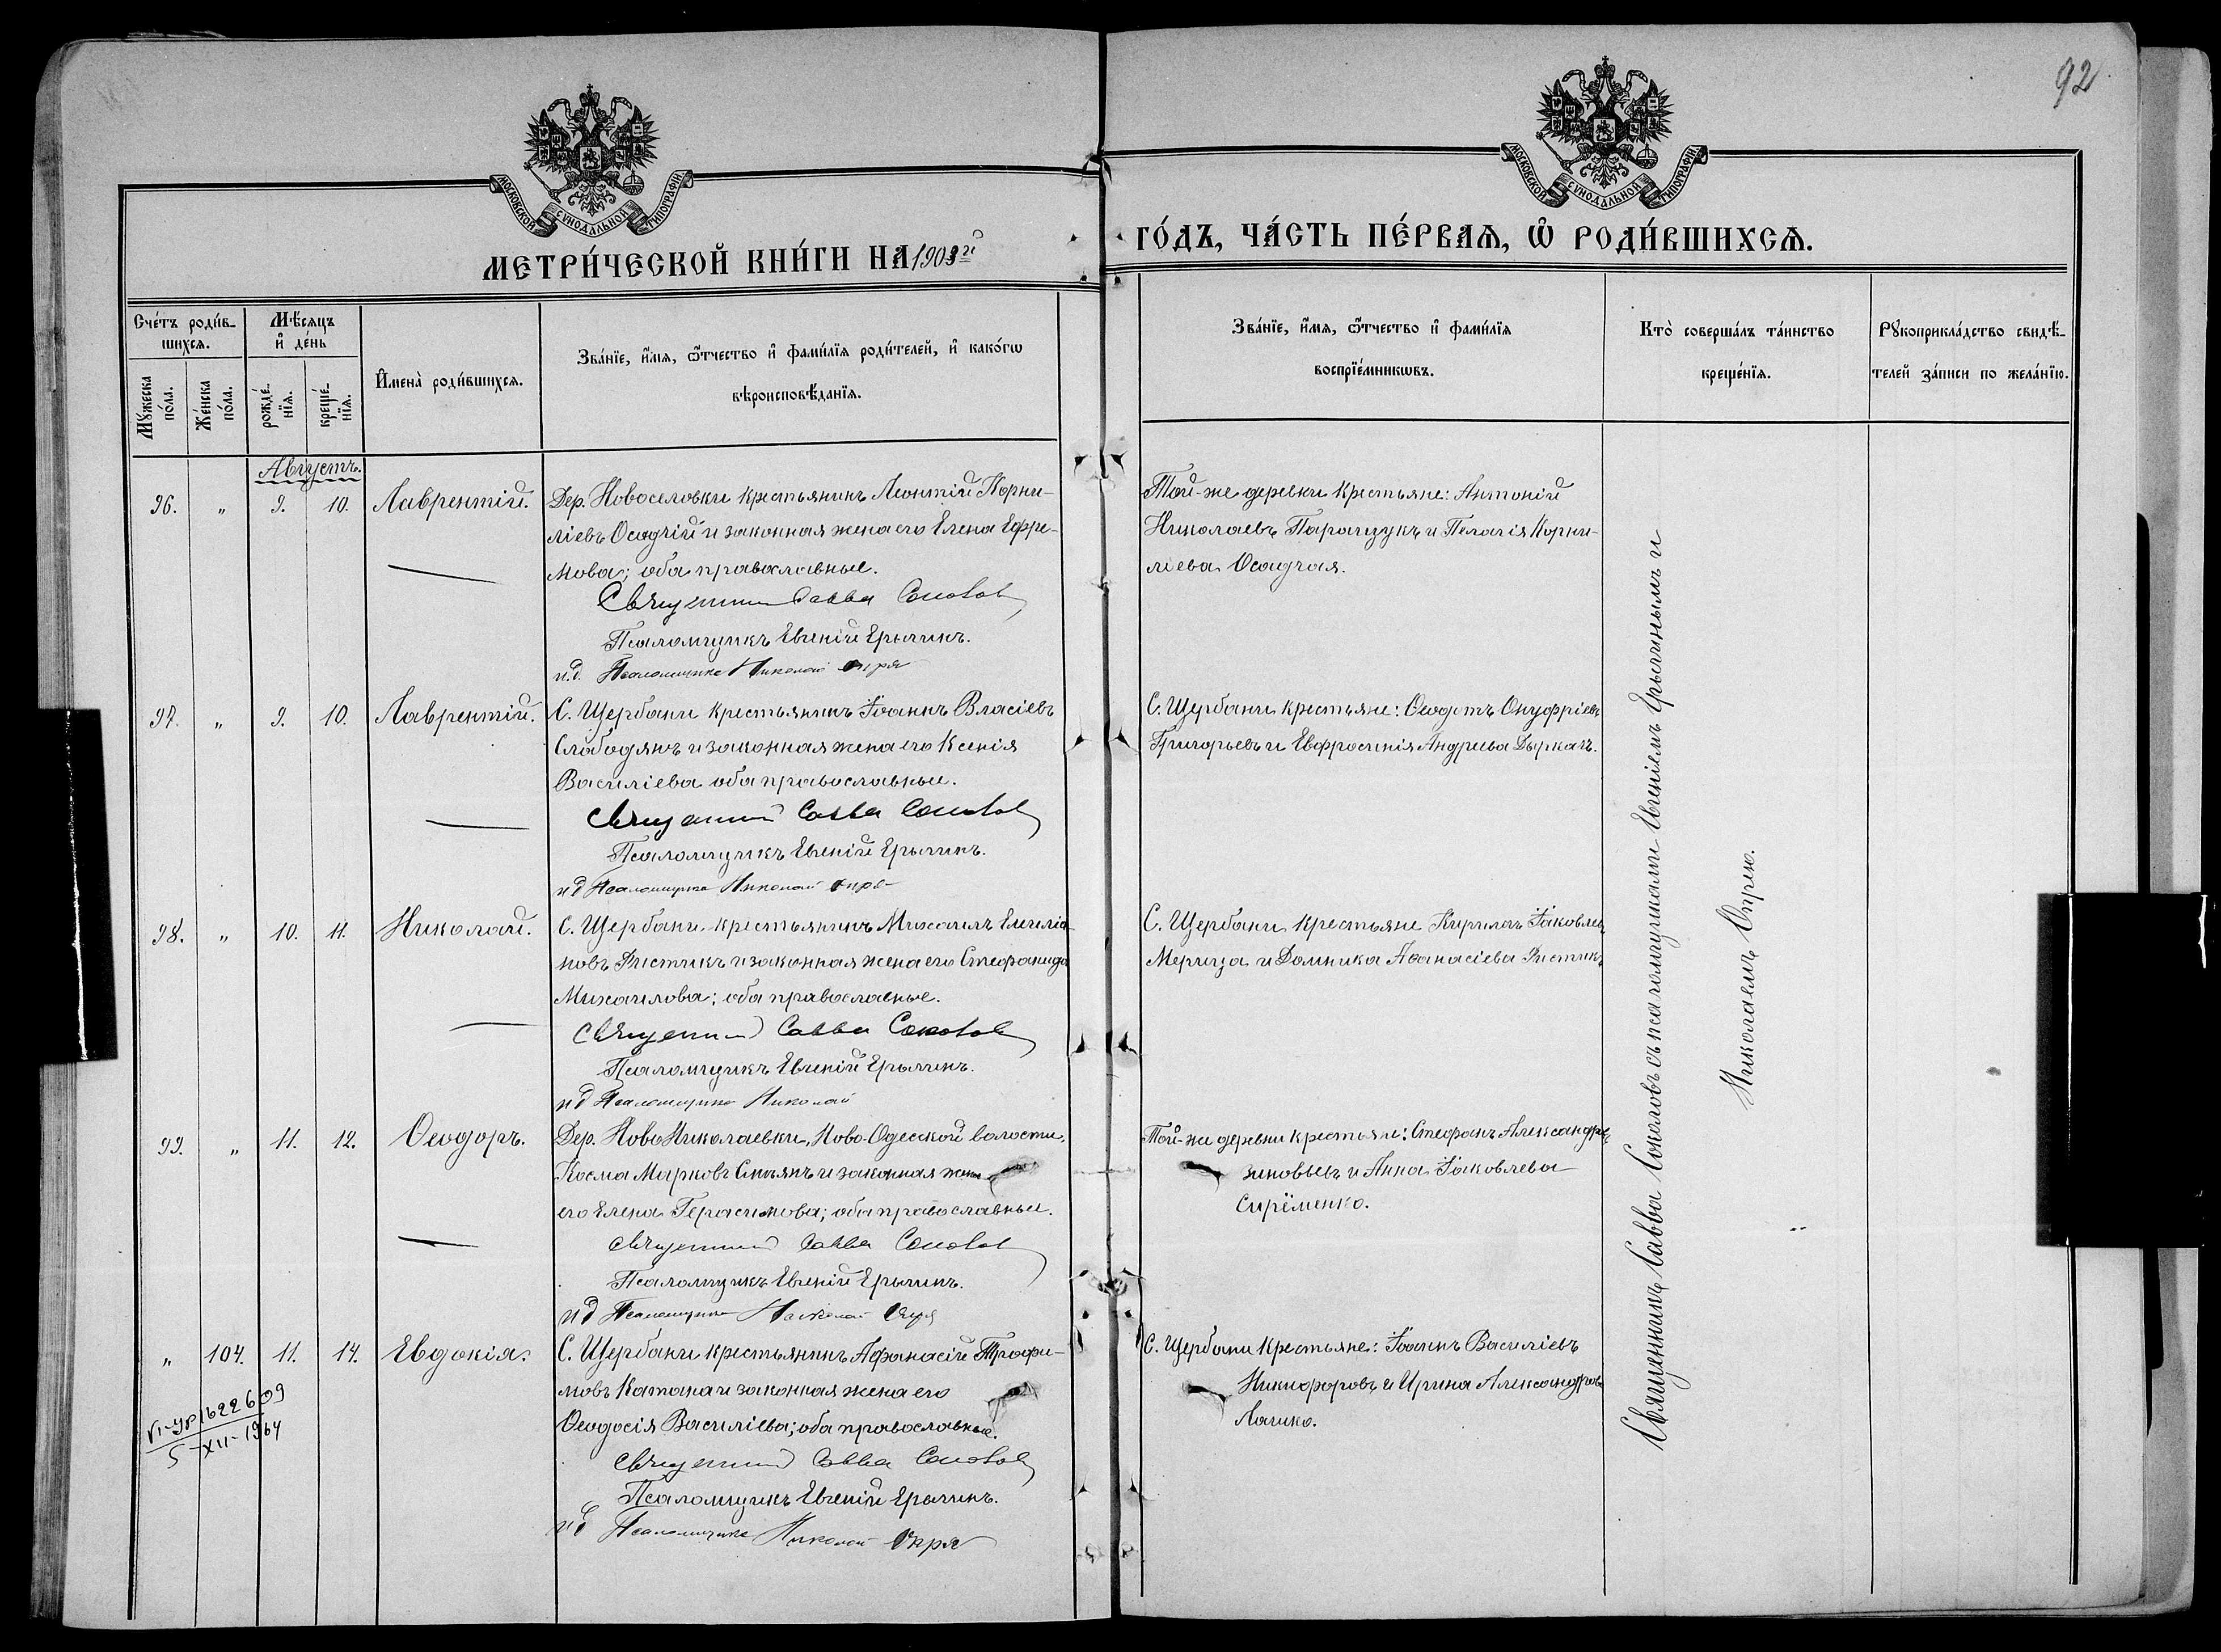 92
МОСКОВСКОЙ СѴНОДАЛЬНОЙ ТИПОГРАФІИ.
МОСКОВСКОЙ СѴНОДАЛЬНОЙ ТИПОГРАФІИ.
МЕТРИ́ЧЕСКОЙ КНИ́ГИ НА 1903й
ГО́ДЪ, ЧА́СТЬ ПЕ́РВАѦ, Ѡ РОДИ́ВШИХСѦ.
Сче́тъ роди́в-
шихсѧ.
Мꙋ́жеска
по́ла.
Же́нска
по́ла.
Мѣ́сѧцъ
и҆ де́нь
рожде́-
нїѧ.
креще́-
нїѧ.
И҆мена̀ роди́вшихсѧ.
Зва́нїе, и҆́мѧ, ѻ҆́тчество и҆ фами́лїѧ роди́телей, и҆ како́гѡ
вѣроисповѣ́данїѧ.
Зва́нїе, и҆́мѧ, ѻ҆́тчество и҆ фами́лїѧ
воспрїе́мникѡвъ.
Кто̀ соверша́лъ та́инство
креще́нїѧ.
Рꙋкоприкла́дство свидѣ́-
телей за́писи по жела́нїю.
Августъ.
96. " 9. 10. Лаврентій.
Дер. Новоселовки крестьянинъ Леонтій Корни-
ліевъ Осадчій и законная жена его Елена Ефре-
мова; оба православные.
Священник Савва Соколов
Псаломщикъ Евгеній Ерыгинъ.
и.д. Псаломщика Николай Опря
Той-же деревни крестьяне: Антоній
Николаевъ Паращукъ и Пелагія Корни-
ліева Осадчая.
97. " 9. 10. Лаврентій.
С. Щербани крестьянинъ Іоаннъ Власіевъ
Слободянъ и законная жена его Ксенія
Василіева оба православные.
Священник Савва Соколов
Псаломщикъ Евгеній Ерыгинъ.
и д Псаломщика Николай Опря
С. Щербани крестьяне: Ѳеодотъ Онуфріевъ
Григорьевъ и Евфросинія Андреева Дыркачъ.
98. " 10. 11. Николай.
С. Щербани крестьянинъ Михаилъ Емиліа-
новъ и законная жена его Стефанида
Михаилова; оба православные.
Священник Савва Соколов
Псаломщикъ Евгеній Ерыгинъ.
и д Псаломщика Николай
С. Щербани крестьяне Кириллъ Іаковлевъ
Мерица и Домника Аѳанасіева
99. " 11. 12. Ѳеодоръ.
Дер. НовоНиколаевки, Ново-Одесской волости,
Косма Марковъ и законная жена
его Елена Герасимова; оба православные.
Священник Савва Соколов
Псаломщикъ Евгеній Ерыгинъ.
и д Псаломщика Николай Опря
Той-же деревни крестьяне: Стефанъ Александровъ
Зиновьевъ и Анна Іаковлева
Сирёменко.
" 104. 11. 14. Евдокія.
С. Щербани крестьянинъ Афанасій Трофи-
мовъ Катана и законная жена его
Ѳеодосія Василіева; оба православные.
Священник Савва Соколов
Псаломщикъ Евгеній Ерыгинъ.
и д Псаломщика Николай Опря
С. Щербани крестьяне: Іоаннъ Василіевъ
Никифоровъ и Ирина Александрова
VI-УР 1622609
5-XII-1964
Священникъ Савва Соколовъ съ псаломщиками Евгеніемъ Ерыгинымъ и
Николаемъ Опрею.